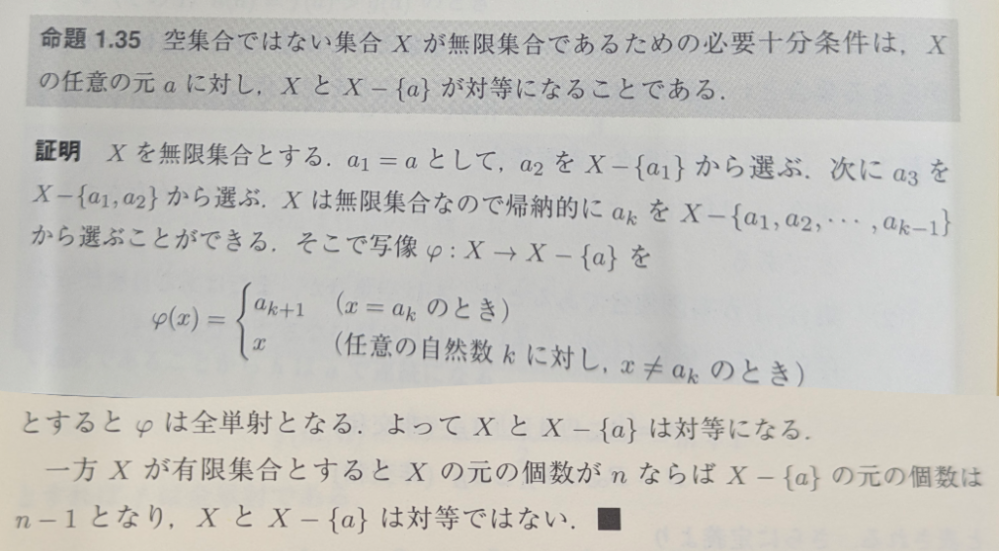 命題 1.35 空集合ではない集合 X が無限集合であるための必要十分条件は，X
の任意の元 a に対し，X と X − {a} が対等になることである．
証明 X を無限集合とする．a₁ = a として，a₂ を X−{a₁} から選ぶ．次に a₃ を
X−{a₁, a₂} から選ぶ．X は無限集合なので帰納的に aₖ を X−{a₁, a₂, ⋯ , aₖ₋₁}
から選ぶことができる．そこで写像 φ : X → X − {a} を
φ(x) = { aₖ₊₁ (x = aₖ のとき)
x (任意の自然数 k に対し, x ≠ aₖ のとき)
とすると φ は全単射となる．よって X と X − {a} は対等になる．
一方 X が有限集合とすると X の元の個数が n ならば X − {a} の元の個数は
n − 1 となり，X と X − {a} は対等ではない．■